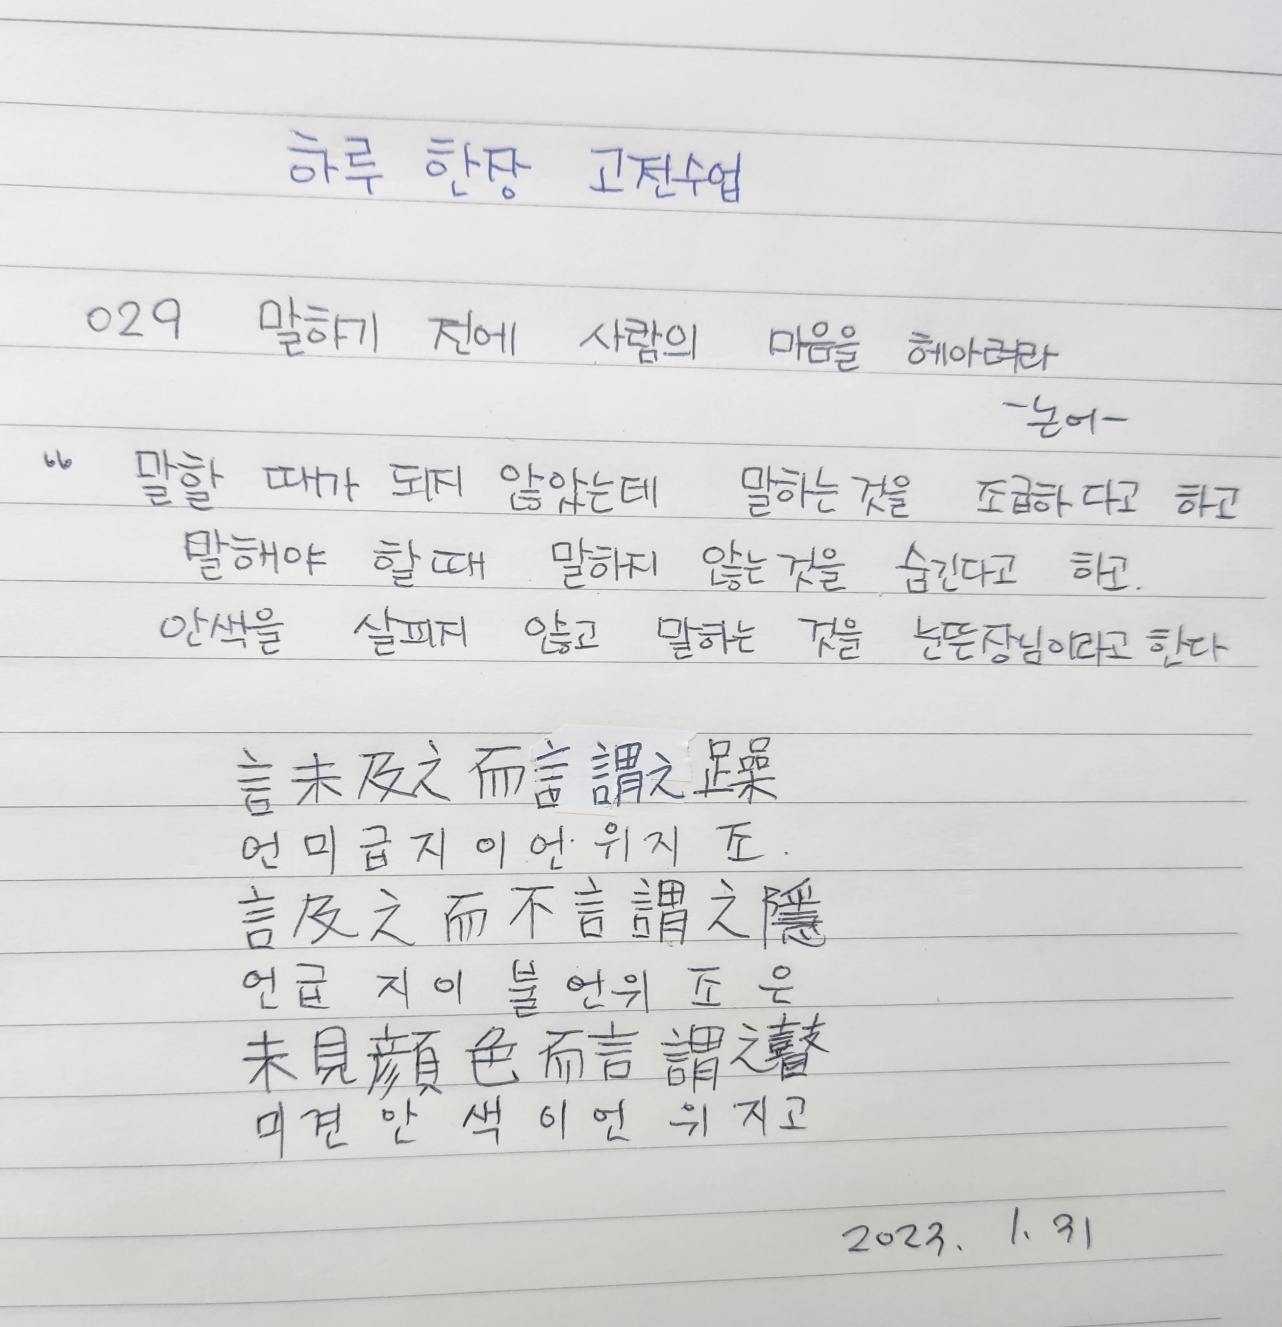 하루 한장 고전수업
029 말하기 전에 사람의 마음을 헤아려라
-논어-
“ 말할 때가 되지 않았는데 말하는 것을 조급하다고 하고
말해야 할 때 말하지 않는 것을 숨긴다고 하고.
안색을 살피지 않고 말하는 것을 눈뜬장님이라고 한다
言未及之而言謂之躁
언미급지이언위지조.
言及之而不言謂之隱
언급지이불언위조은
未見顔色而言謂之瞽
미견안색이언위지고
2023. 1. 31